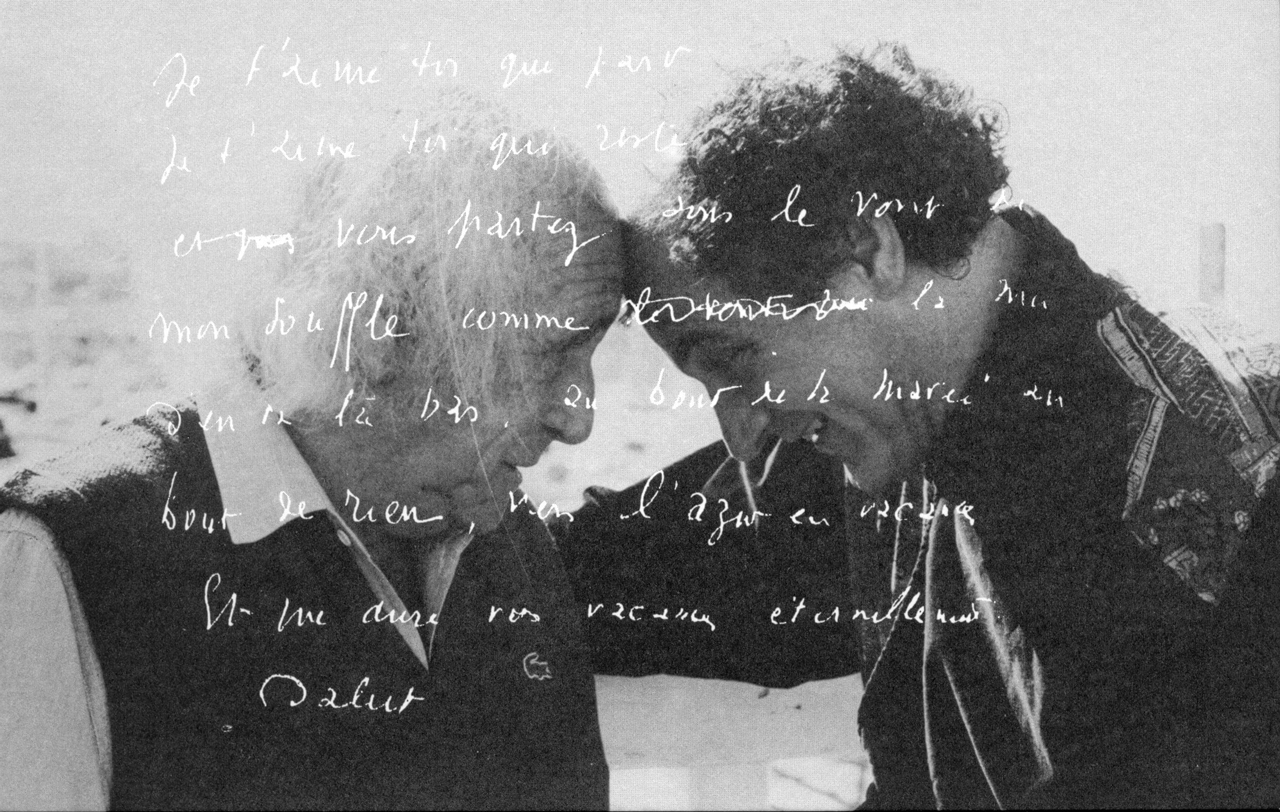 Je t'aime toi qui pars
Je t'aime toi qui reste
et vous partez dans le vent de
mon souffle comme la
d'en là bas. au bout de la marée au
bout de rien, vers l'azur en vacances
Et que dure vos vacances éternellement.
Salut